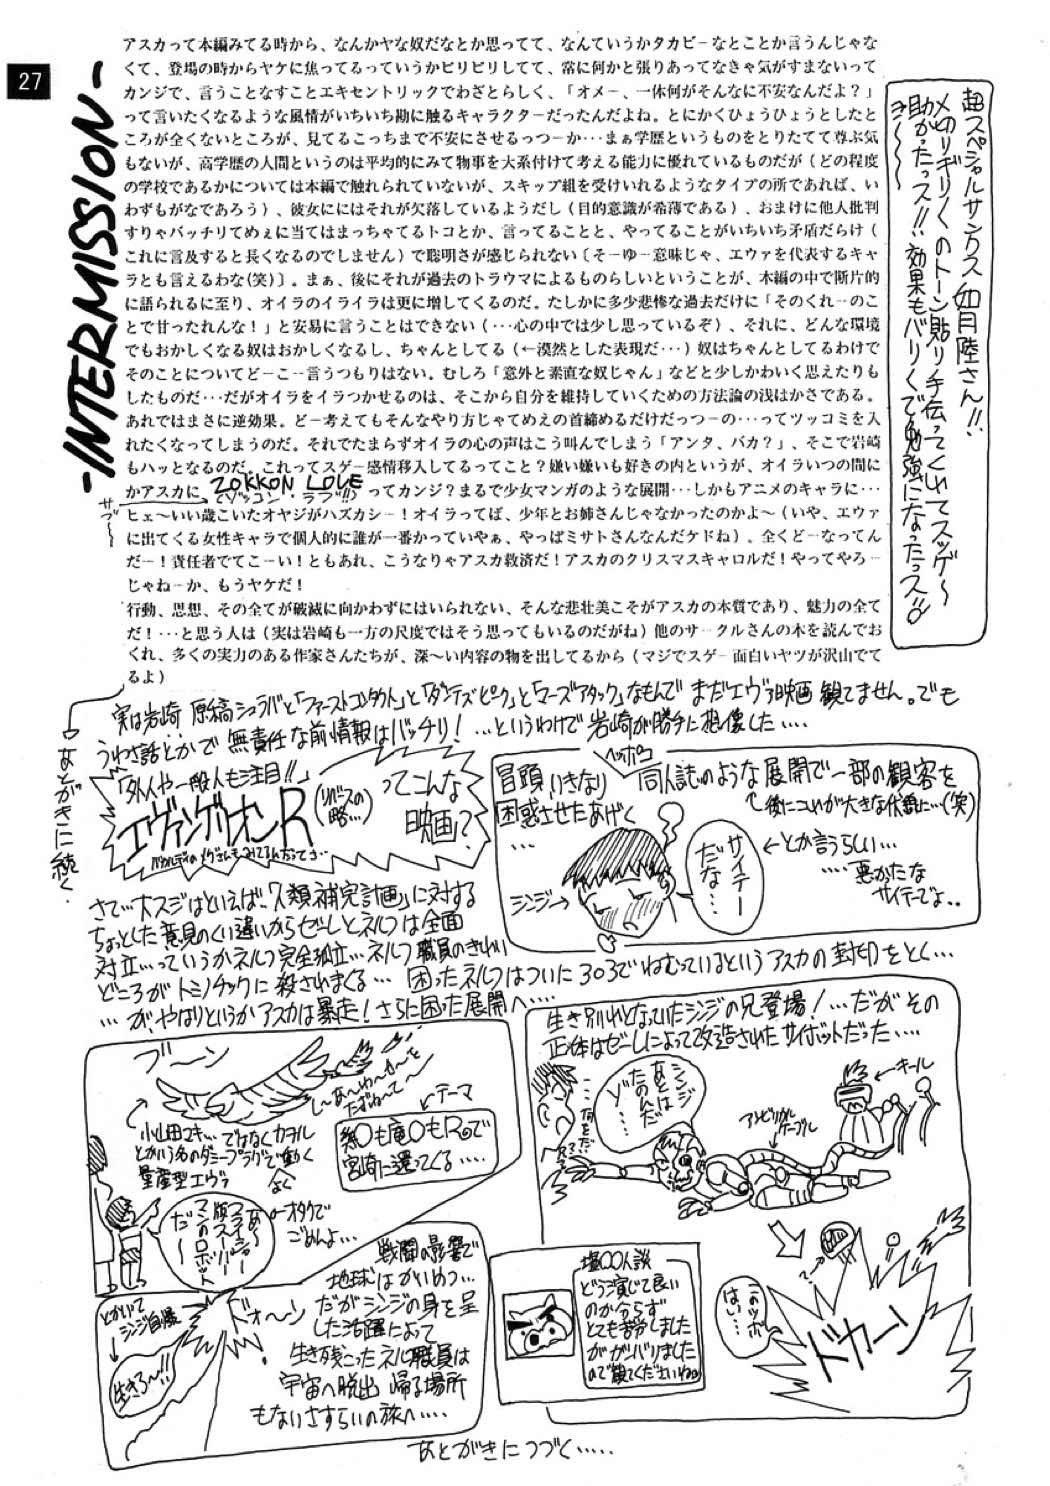 27
-INTERMISSION-
アスカって本編みてる時から、なんかヤな奴だなとか思ってて、なんていうかタカビーなとことか言うんじゃな
くて、登場の時からヤケに焦ってるっていうかピリピリしてて、常に何かと張りあってなきゃ気がすまないって
カンジで、言うことなすことエキセントリックでわざとらしく、「オメー、一体何がそんなに不安なんだよ？」
って言いたくなるような風情がいちいち勘に触るキャラクターだったんだよね。とにかくひょうひょうとしたと
ころが全くないところが、見てるこっちまで不安にさせるっつーか…まぁ学歴というものをとりたてて尊ぶ気
もないが、高学歴の人間というのは平均的にみて物事を大系付けて考える能力に優れているものだが（どの程度
の学校であるかについては本編で触れられていないが、スキップ組を受けいれるようなタイプの所であれば、い
わずもがなであろう）、彼女ににはそれが欠落しているようだし（目的意識が希薄である）、おまけに他人批判
すりゃバッチリてめぇに当てはまっちゃてるトコとか、言ってることと、やってることがいちいち矛盾だらけ（
これに言及すると長くなるのでしません）で聡明さが感じられない〔そーゆー意味じゃ、エヴァを代表するキャ
ラとも言えるわな(笑)〕。まぁ、後にそれが過去のトラウマによるものらしいということが、本編の中で断片的
に語られるに至り、オイラのイライラは更に増してくるのだ。たしかに多少悲惨な過去だけに「そのくれーのこ
とで甘ったれんな！」と安易に言うことはできない（…心の中では少し思っているぞ）、それに、どんな環境
でもおかしくなる奴はおかしくなるし、ちゃんとしてる（←漠然とした表現だ…）奴はちゃんとしてるわけで
そのことについてどーこー言うつもりはない。むしろ「意外と素直な奴じゃん」などと少しかわいく思えたりも
したものだ…だがオイラをイラつかせるのは、そこから自分を維持していくための方法論の浅はかさである。
あれではまさに逆効果。どー考えてもそんなやり方じゃてめえの首締めるだけだっつーの…ってツッコミを入
れたくなってしまうのだ。それでたまらずオイラの心の声はこう叫んでしまう「アンタ、バカ？」、そこで岩崎
もハッとなるのだ。これってスゲー感情移入してるってこと？嫌い嫌いも好きの内というが、オイラいつの間に
かアスカに ZOKKON LOVE（ゾッコン・ラブ!!）ってカンジ？まるで少女マンガのような展開…しかもアニメのキャラに…
サブ〜〜
ヒェ〜いい歳こいたオヤジがハズカシー！オイラってば、少年とお姉さんじゃなかったのかよ〜（いや、エヴァ
に出てくる女性キャラで個人的に誰が一番かっていやぁ、やっぱミサトさんなんだケドね）。全くどーなってん
だー！責任者でてこーい！ともあれ、こうなりゃアスカ救済だ！アスカのクリスマスキャロルだ！やってやろー
じゃねーか、もうヤケだ！
行動、思想、その全てが破滅に向かわずにはいられない、そんな悲壮美こそがアスカの本質であり、魅力の全て
だ！…と思う人は（実は岩崎も一方の尺度ではそう思ってもいるのだがね）他のサークルさんの本を読んでお
くれ、多くの実力のある作家さんたちが、深〜い内容の物を出してるから（マジでスゲー面白いヤツが沢山でて
るよ）
超スペシャルサンクス如月陸さん!!
メ切りギリギリのトーン貼り手伝ってくれてスッゲ〜
助かったっス!!効果もバリバリで勉強になったっス
あとがきに続く
実は岩崎 原稿シュラバと「ファーストコンタクト」と「ダンテズピーク」と「マーズアタック」なもんで まだエヴァ映画観てません。でも
うわさ話とかで 無責任な前情報はバッチリ！…というわけで岩崎が勝手に想像した….
「外人や一般人も注目!!」
エヴァンゲリオンR
（リバースの略…）
ってこんな
映画？
冒頭、いきなり ヘッポコ同人誌のような展開で一部の観客を
困惑させたあげく
…
↖後にコレが大きな伏線に…(笑)
シンジ→
サイテーだな…
←とか言うらしい…
悪かたな
サイテーでよ..
さて…大スジはといえば「人類補完計画」に対する
ちょっとした意見のくい違いからゼーレとネルフは全面
対立…っていうかネルフ完全孤立…ネルフ職員のきれい
どころがトミノチックに殺されまくる… 困ったネルフはついに303でねむっているというアスカの封印をとく…
…が、やはりというかアスカは暴走！さらに困った展開へ….
ブーン
小山田マキ…ではなくカヲル
とかいう名のダミープラグで動く
量産型エヴァ
←テーマ
祭〇も庵〇もRので
宮崎に還ってくる….
だ〜
オタクで
ごめんよ…
生き別れとなっていたシンジの兄登場！…だがその
正体はゼーレによって改造されたサイボットだった….
シンジ
あとは
たのんだ
ゾ…
←キール
アンビリカル
ケーブル
このツボ
はい…
ドカーン
とかいて
シンジ自爆
生きろ〜!!
ドォ〜ン
戦闘の影響で
地球はかいめつ…
だがシンジの身を呈
した活躍によって
生き残こったネルフ職員は
宇宙へ脱出 帰る場所
もないさすらいの旅へ….
塩〇〇人談
どうう演じて良い
のか分らず
とても苦労しました
がガンバリました
ので観てくださいね
あとがきにつづく…..